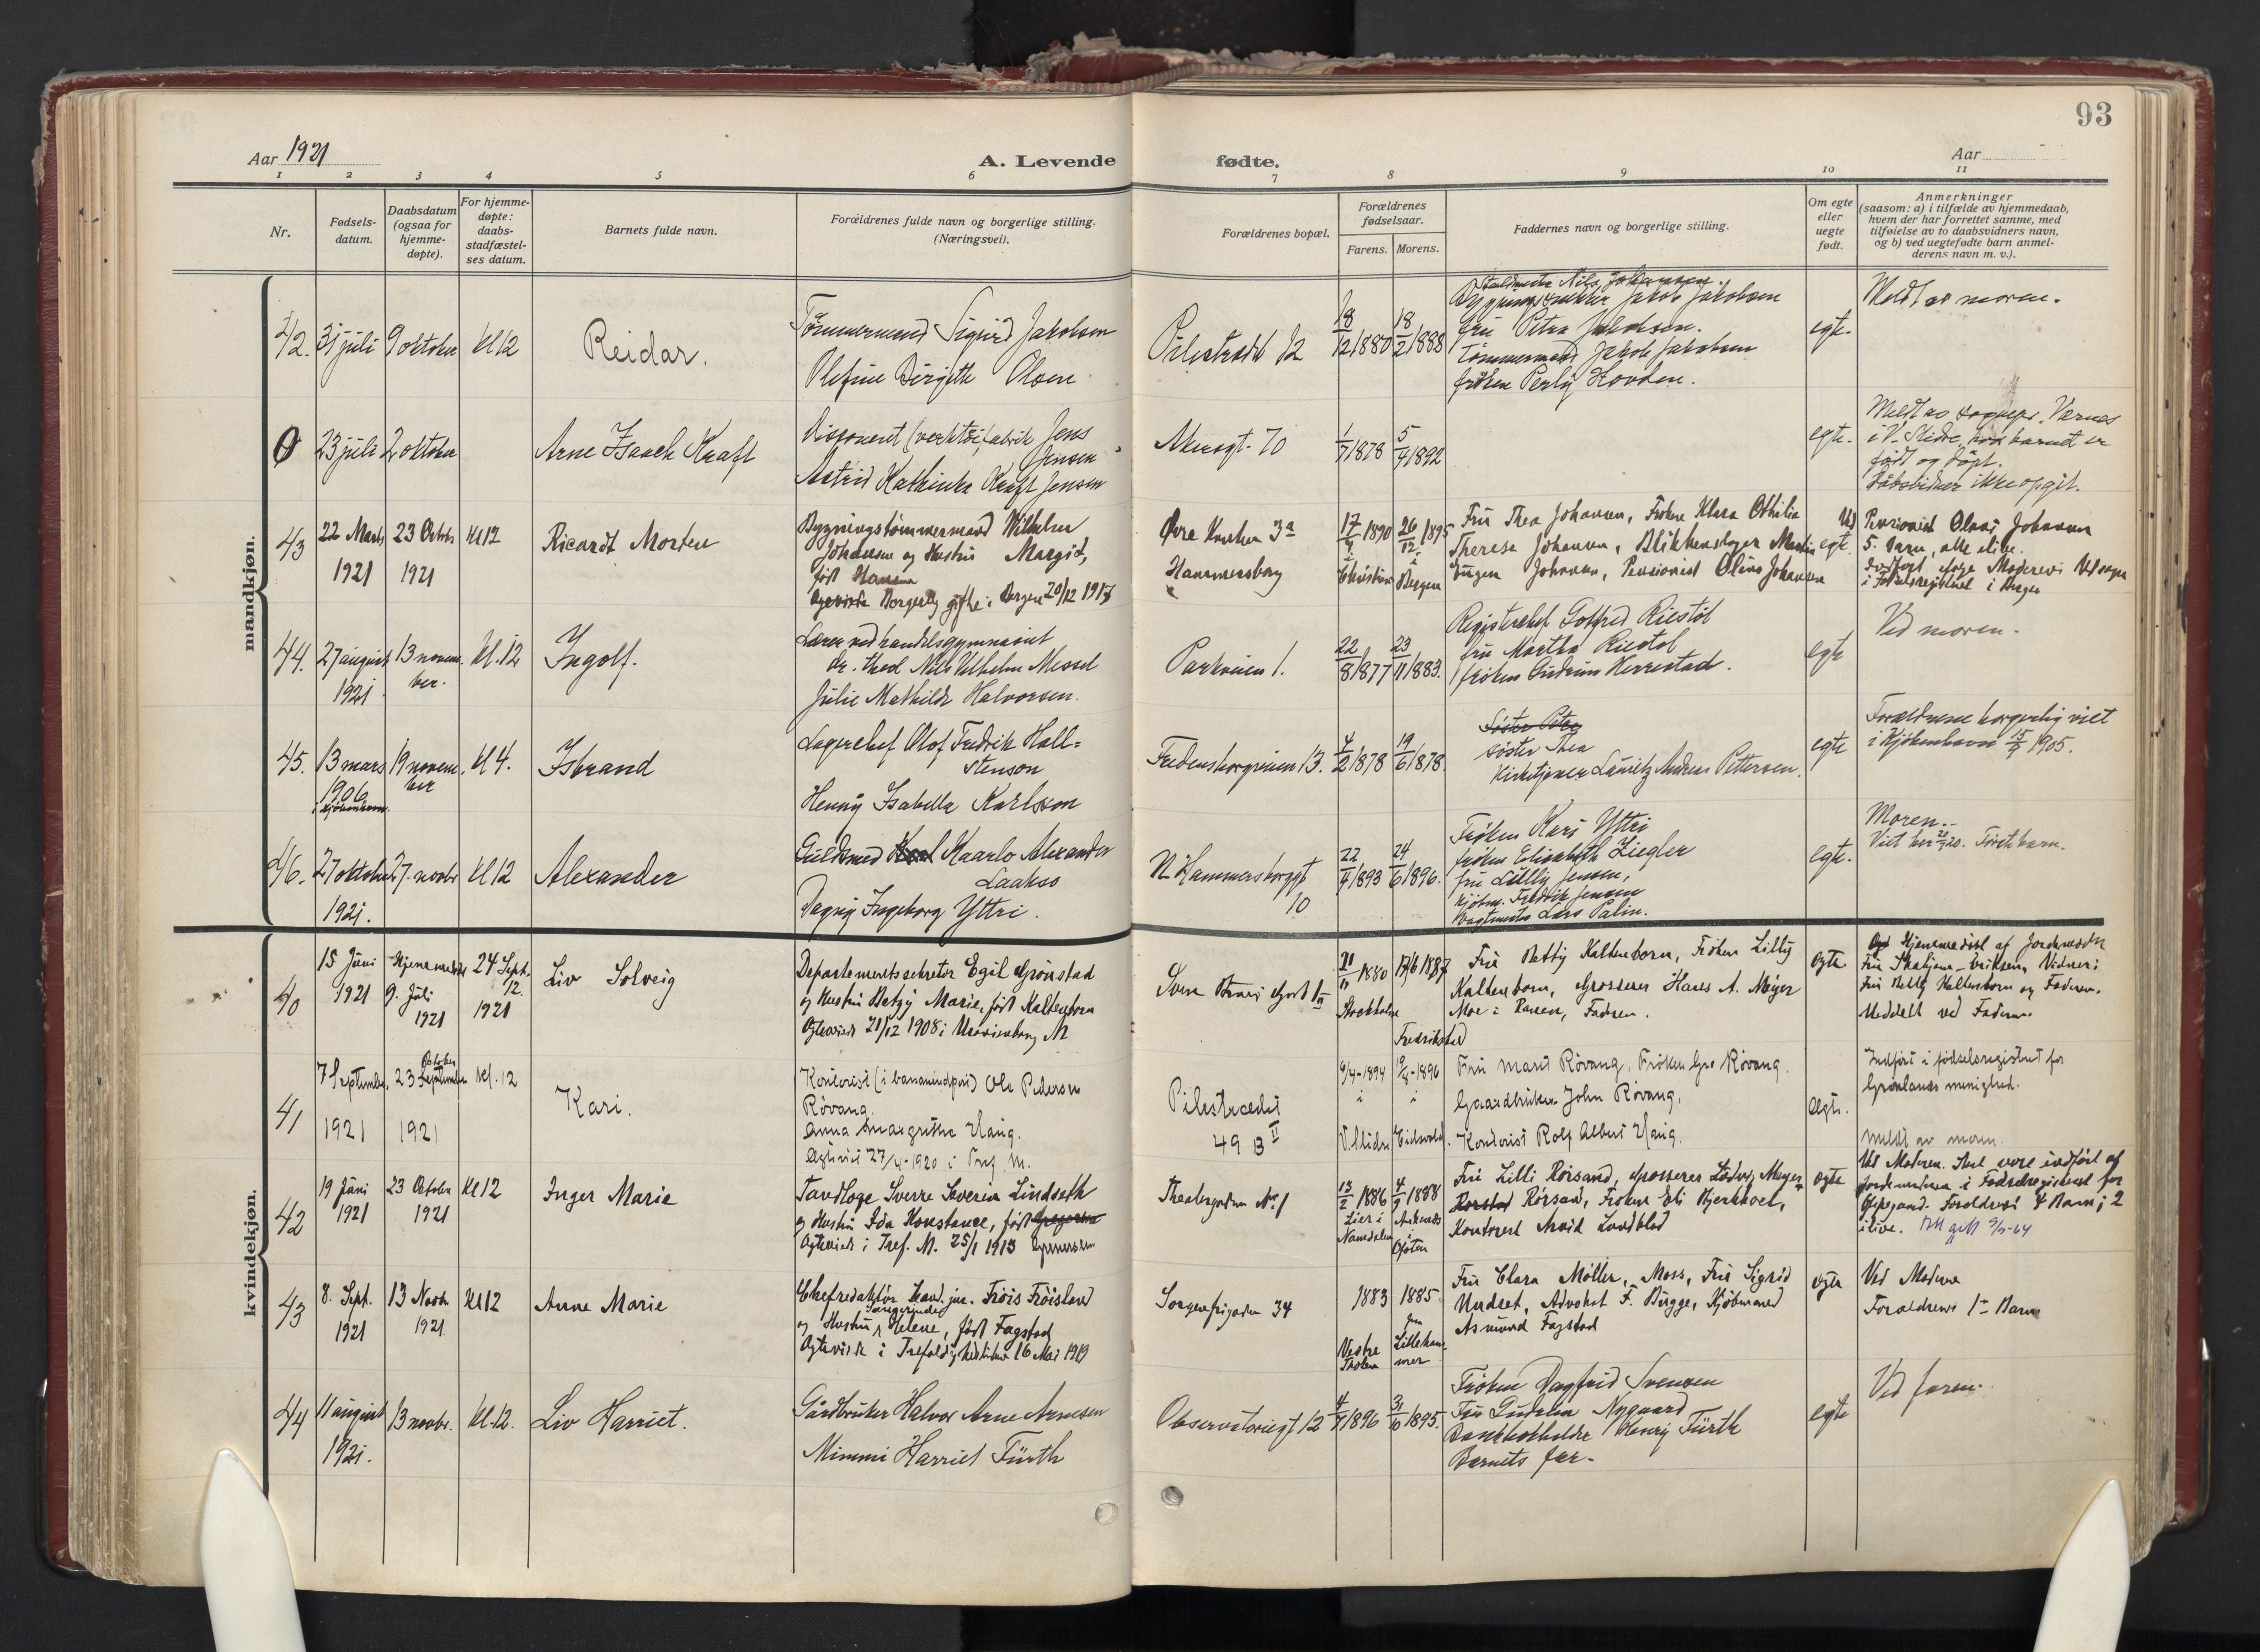 93
Aar 1921
A. Levende fødte.
Aar
1 2 3 4 5 6 7 8 9 10 11
Nr.
Fødsels-
datum.
Daabsdatum
(ogsaa for
hjemme-
døpte).
For hjemme-
døpte:
daabs-
stadfæstel-
ses datum.
Barnets fulde navn.
Forældrenes fulde navn og borgerlige stilling.
(Næringsvei).
Forældrenes bopæl.
Forældrenes
fødselsaar.
Farens. Morens.
Faddernes navn og borgerlige stilling.
Om egte
eller
uegte
født.
Anmerkninger
(saasom: a) i tilfælde av hjemmedaab,
hvem der har forrettet samme, med
tilføielse av to daabsvidners navn,
og b) ved uegtefødte barn anmel-
derens navn m. v.).
mandkjøn.
42. 31 juli 9 oktober kl 12
Reidar.
Tømmermand Sigurd Jakobsen
Olefine Birgitte Olsen
Pilestrædet 12
18/12 1880 18/2 1888
Jakob Jakobsen
fru Petra Jakobsen.
Tømmermand Jakob Jakobsen
frøken Perly Hovden.
egte.
Meldt av moren.
0 23 juli 2 oktober
Arne Isaach Kraft
Disponent (verktøifabrik Jens
Jensen
Astrid Kathinka Kraft Jensen
Akersgt. 70
1/7 1878 5/4 1892
egte.
Meldt av sognepr. Værnes
i V. Slidre, hvor barnet er
født og døpt.
ikke opgit.
43 22 Marts 23 Octobr Kl 12
1921 1921
Ricardt Morten
Bygningstømmermand Wilhelm
Johansen og Hustru Margit,
født Hansen
Borgerlig gifte i Bergen 20/12 1917
Øvre 3a
Hammersborg
17/4 1890 26/12 1895
i i
Christiania Bergen
Fru Thea Johansen, Frøken Klara Othilie
Therese Johansen, Blikkenslager Martin
Eugen Johansen, Pensionist Olaus Johansen
egte.
Ved Pensionist Olaus Johansen
5. Barn, alle ilive.
i Fødselsregistret i Bergen
44. 27 august 13 novem- kl. 12
1921 ber.
Ingolf.
Lærer ved handelsgymnasiet
dr. theol Nils Vilhelm Messel
Julie Mathilde Halvorsen.
Parkveien 1.
22/8 1877 23/11 1883.
Registerchef Gotfred Riestøl
fru Martha Riestøl
frøken Gudrun Herrestad.
egte
Ved moren.
45. 13 mars 19 novem- kl 4.
1906 ber
i Kjøbenhavn.
Isbrand
Lagerchef Olof Fredrik Hall=
stenson
Henny Isabella Karlsson
Fredensborgveien 13.
4/2 1878 19/6 1878.
Søster Petra
Søster Thea
Kirketjener Lauritz Andreas Pettersen.
egte
Forældrene borgerlig viet
i Kjøbenhavn 15/5 1905.
46. 27 oktober 27. novbr kl 12
1921.
Alexander
Guldsmed Karl Kaarlo Alexander
Laakso
Dagny Ingeborg Yttri.
N. Hammersborggt
10
22/4 1893 24/6 1896.
Frøken Kari Yttri
frøken Elisabeth Ziegler
fru Lilly Jensen,
kjøbm. Fredrik Jensen
Vagtmester Lars Palin.
egte.
Moren.
Viet her 20. Første barn.
kvindekjøn.
40 15 Juni Hjemmedøbt 24 Sept.
1921 9. Juli 12.
1921 1921
Liv Solveig
Departementssekretær Egil Grønstad
og Hustru Betzy Marie, født Kaltenborn
Ægteviede 21/12 1908 i Uranienborg M
Svein gort 1 II
21/11 1880 17/6 1887
Stockholm
Fredrikstad
Fru Betty Kaltenborn, Frøken Lilly
Kaltenborn, Grosserer Hans A. Meyer
Moe i Ranen, Faderen.
egte.
Hjemmedøbt af Jordemoder
Fru Skatjem-Eriksen, Vidner:
Fru Betty Kaltenborn og Faderen.
Meddelt ved Faderen.
41 7 September 23 October September kl. 12
1921 1921
Kari.
Kontorist (i bananimport) Ole Pedersen
Røvang.
Anna Margrethe Haug.
Ægteviet 27/4-1920 i Tref. M.
Pilestrædet
49 B II
6/4-1894 1896
i i
V. Slidre Eidsvold.
Fru Marit Røvang, Frøken Gro Røvang.
Gaardbruker John Røvang,
Kontorist Rolf Albert Haug.
egte.
Indført i fødselsregistret for
Grønlands menighed.
Meldt av moren.
42 19 Juni 23 October Kl 12
1921 1921
Inger Marie
Tandlæge Sverre Severin Lindseth
og Hustru Ida Konstance, født Gregersen
Ægteviede i Tref. M. 25/1 1913
Theatergaden No 1
13/2 1886 4/9 1888
Lier i Ankenes
Namdalen i
Ofoten
Fru Lilli Rørsand, Grosserer Ludvig Meyer
Rørsand, Frøken Eli Bjerknes,
Kontorist Arvid Lundblad
egte
Ved Moderen. Skal være indført af
Jordemoderen i Fødselsregistret for
Oppegaard. Forældrenes 4 Barn; 2
ilive.
43 8. Sept. 13 Novbr Kl 12
1921 1921
Anne Marie
Chefredaktør kand. jur. Frøis Frøisland
Sangerinde
og Hustru, Helene, født Fagstad
Ægteviede i Trefoldighetskirken 16 Mai 1919
Sorgenfrigaden 34
1883 1885
Vestre Lilleham-
Toten mer
Fru Clara Møller, Moss, Fru Sigrid
Undset, Advokat F. Bugge, Kjøbmand
Asmund Fagstad
egte
Ved Moderen
Forældrenes 1ste Barn
44 11 august 13 novbr. Kl. 12.
1921.
Liv Harriet.
Gårdbruker Halvor Arne Arnesen
Mimmi Harriet Fürth
Observatoriegt 12
4/7 1896 3/6 1895.
Frøken Dagfrid Svensen
Fru Gudelin Nygaard
Henry Fürth
Barnets far.
egte
Ved faren.